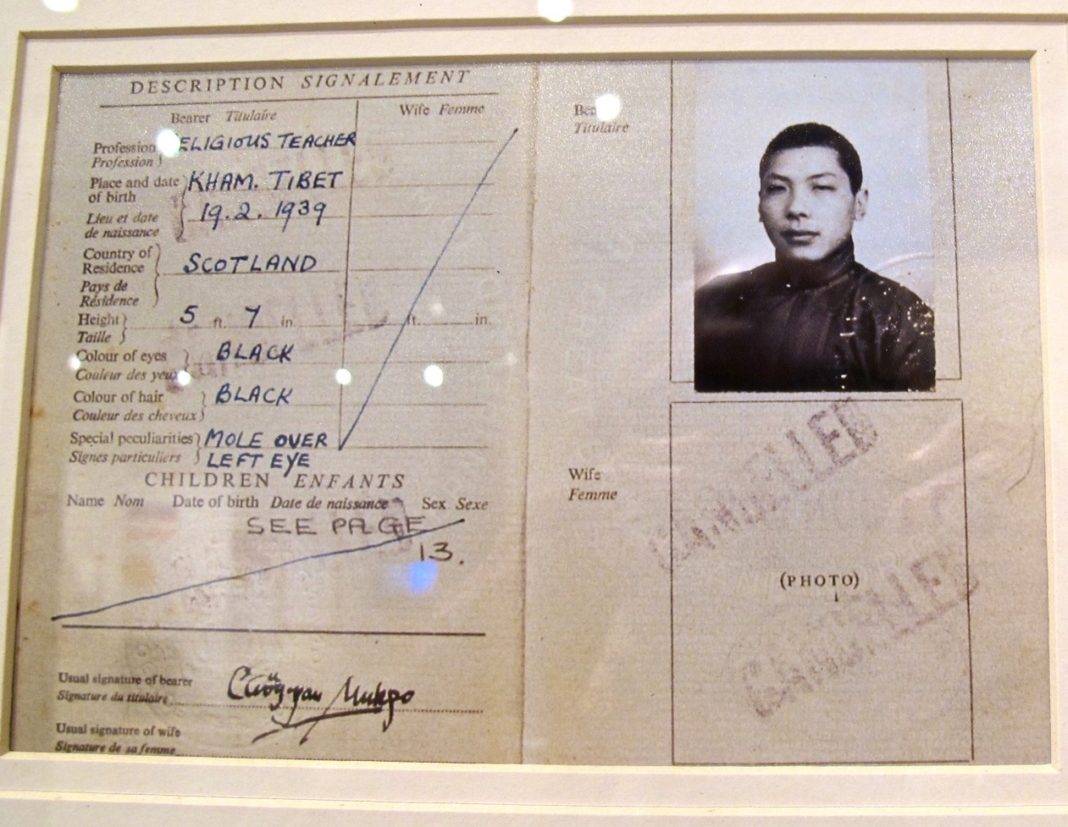 DESCRIPTION SIGNALEMENT
Bearer Titulaire
Wife Femme
Profession RELIGIOUS TEACHER
Profession
Place and date KHAM. TIBET
of birth
Lieu et date 19.2.1939
de naissance
Country of
Residence SCOTLAND
Pays de
Résidence
Height 5 ft. 7 in ft. in.
Taille
Colour of eyes BLACK
Couleur des yeux
Colour of hair BLACK
Couleur des cheveux
Special peculiarities MOLE OVER
Signes particuliers LEFT EYE
CHILDREN ENFANTS
Name Nom Date of birth Date de naissance Sex Sexe
SEE PAGE
13.
Usual signature of bearer
Signature du titulaire
Chögyam Mukpo
Usual signature of wife
Signature de sa femme
Bearer
Titulaire
CANCELLED
Wife
Femme
(PHOTO)
CANCELLED